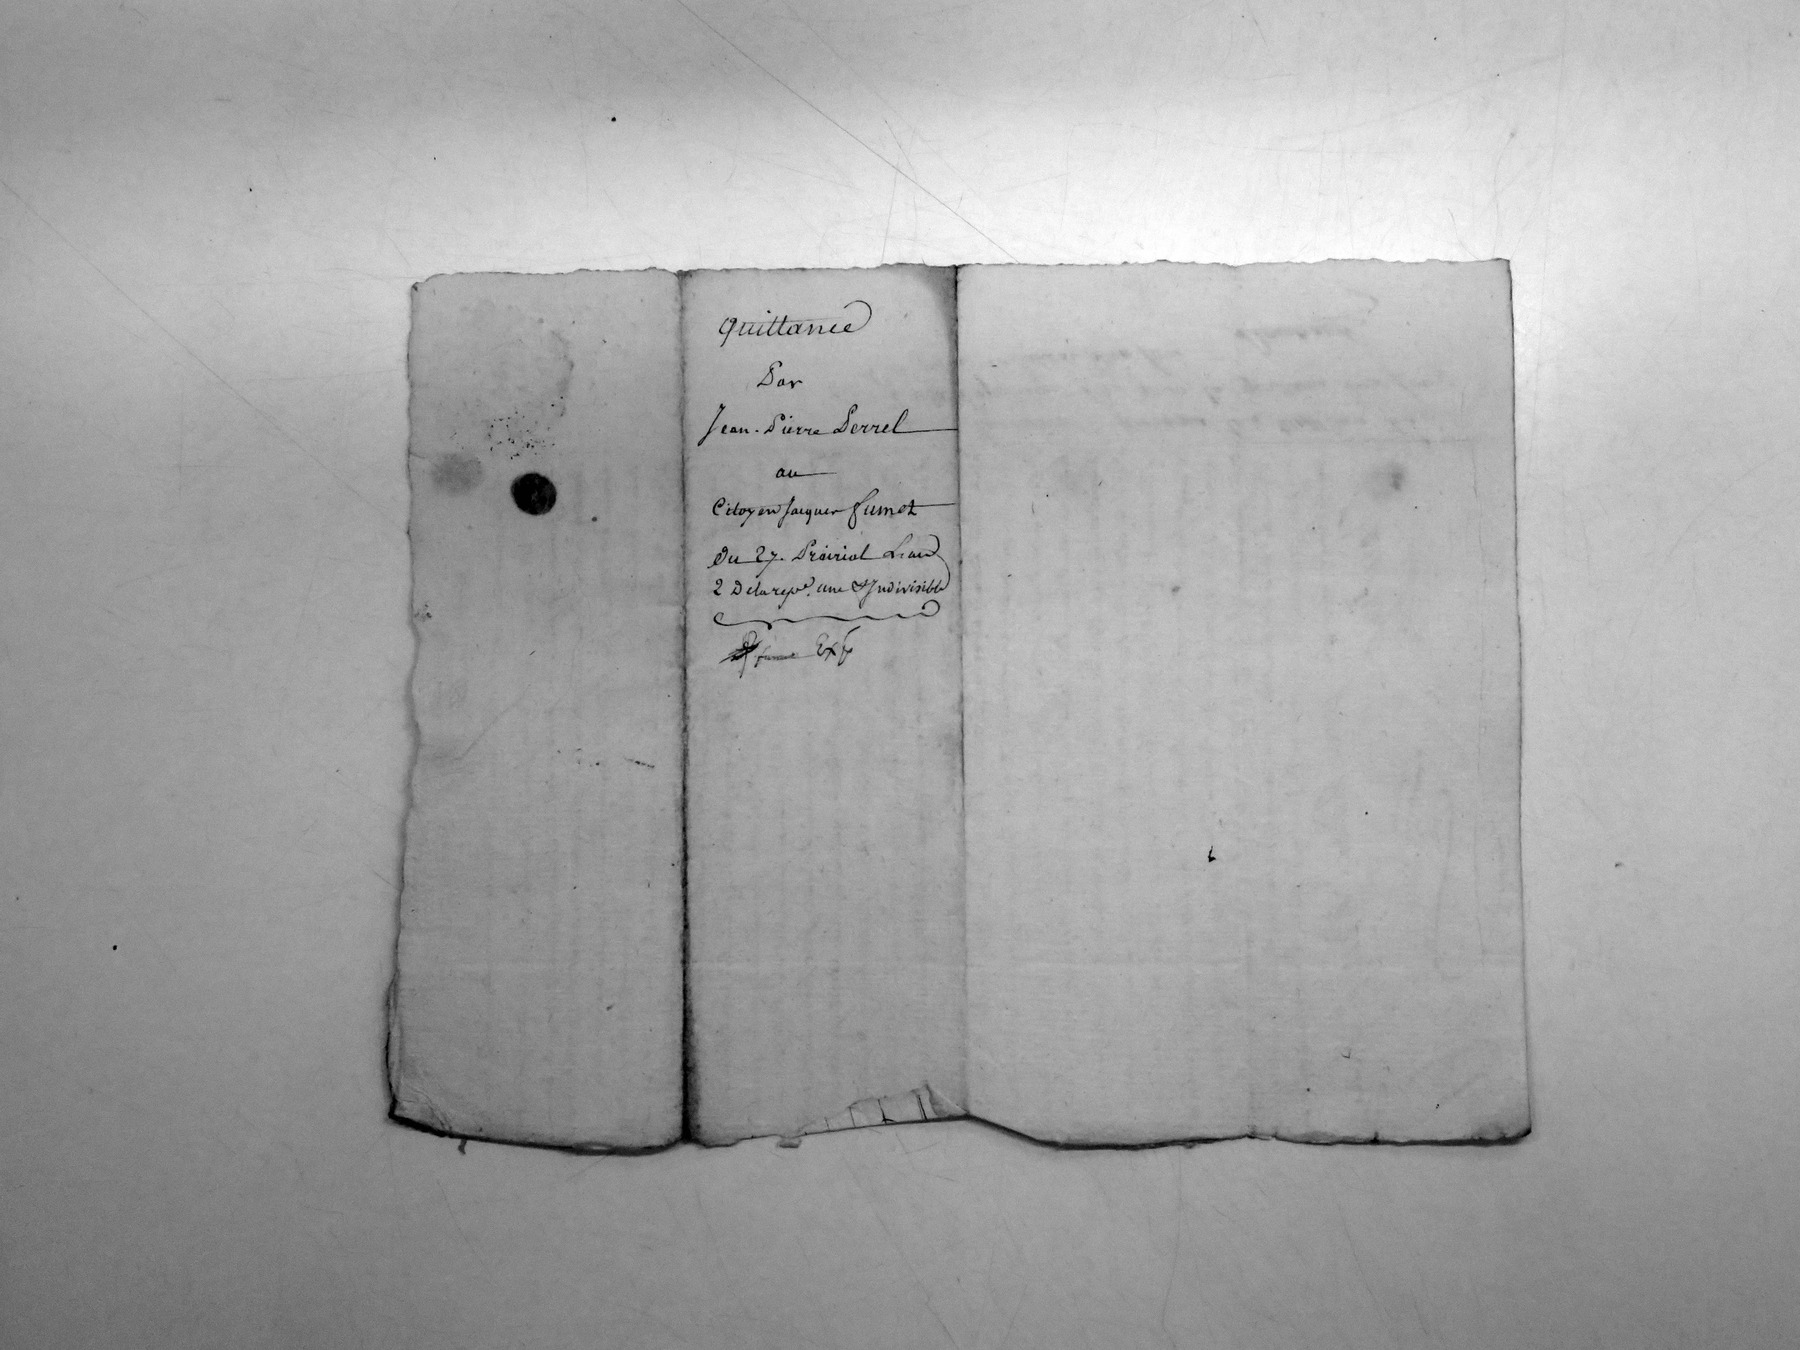 Quittance
Par
Jean-Pierre Perrel
au
Citoyen Jacques fumet
Du 27. Prairial L'an
2 De la repe. une & Indivisible
Exp